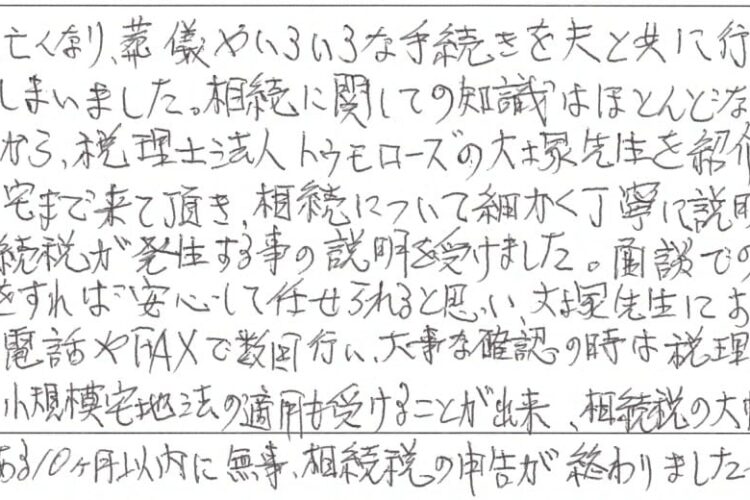 亡くなり、葬儀やいろいろな手続きを夫と共に行
しまいました。相続に関しての知識はほとんどな
から、税理士法人トゥモローズの大塚先生を紹介
宅まで来て頂き、相続について細かく丁寧に説明
続税が発生する事の説明を受けました。面談での
をすればご安心して任せられると思い、大塚先生にお
電話やFAXで数回行い、大事な確認の時は税理
小規模宅地法の適用も受けることが出来、相続税の大
ある10ヶ月以内に無事、相続税の申告が終わりました